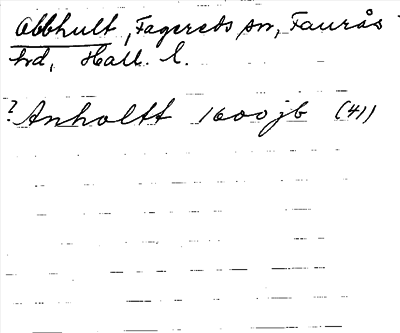 Abbhult, Fagereds sn, Faurås
hd, Hall. l.
? Anholtt 1600 jb (41)